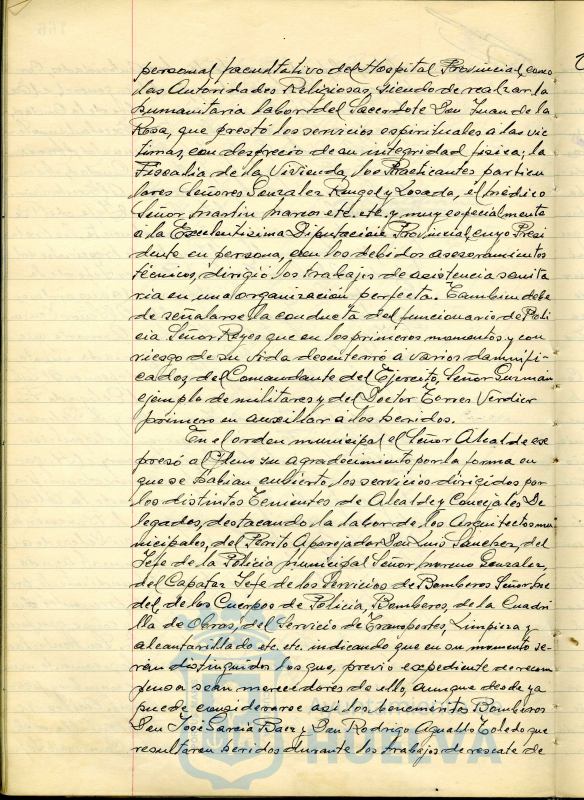 personal facultativo del Hospital Provincial, como
las Autoridades Religiosas, siendo de realzar la
humanitaria labor del Sacerdote Don Juan de la
Rosa, que prestó los servicios espirituales á las víc
timas, con desprecio de su integridad física; la
Fiscalía de la Vivienda, los Practicantes particu
lares Señores Gonzalez Rungol y Losada, el médico
Señor Martin Marcos etc. etc. y muy especialmente
a la Excelentísima Diputación Provincial, cuyo Presi
dente en persona, con los debidos asesoramientos
técnicos, dirigió los trabajos de asistencia sanita
ria en una organización perfecta. Tambien debe
de señalarse la conducta del funcionario de Poli
cía Señor Reyes que en los primeros momentos y con
riesgo de su vida desenterró a varios damnifi
cados, del Comandante del Ejercito, Señor Guzmán
ejemplo de militares y del Doctor Torres Verdier
primero en auxiliar á los heridos.
En el orden municipal el Señor Alcalde ex
presó al Pleno su agradecimiento por la forma en
que se habian cubierto los servicios dirigidos por
los distintos Tenientes de Alcalde y Concejales De
legados, destacando la labor de los Arquitectos mu
nicipales, del Perito Aparejador Don Luis Sanchez, del
Jefe de la Policía Municipal Señor Moreno Gonzalez,
del Capataz Jefe de los Servicios de Bomberos Señor
del, de los Cuerpos de Policía, Bomberos, de la Cuadri
lla de Obras, del Servicio de Transportes, Limpieza y
alcantarillado etc. etc. indicando que en su momento se
rán distinguidos los que, previo expediente de recom
pensa sean merecedores de ello, aunque desde ya
puede considerarse así los beneméritos Bomberos
Don José García Baez y Don Rodrigo Agualto Toledo que
resultaron heridos durante los trabajos de rescate de
HUELVA